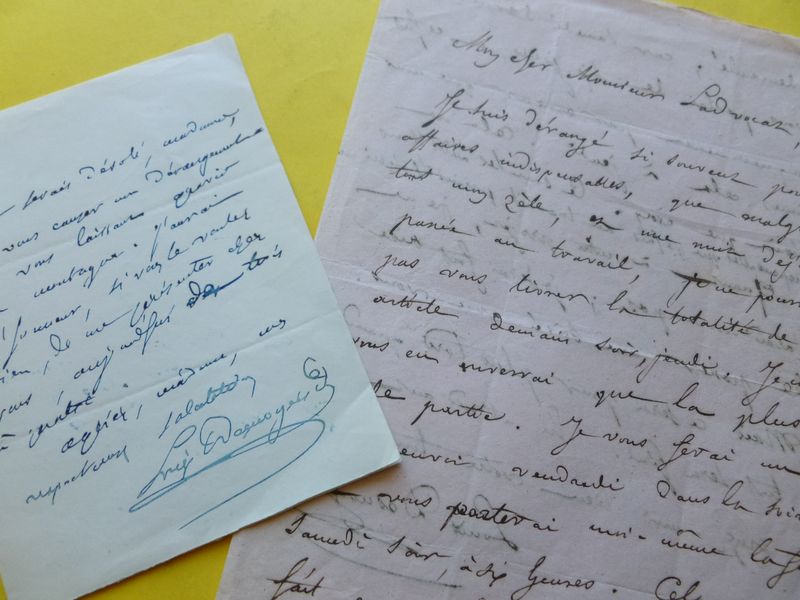 serais désolé, madame,
vous causer un dérangement
vous laissant gravir
montagne. J'aurai
l'honneur, si vous le voulez
bien, de me présenter chez
vous, aujourd'hui de trois
à quatre.
agréez, madame, mes
respectueuses salutations
Louis Desnoyers
Mon cher Monsieur Ladvocat,
Je suis dérangé si souvent pour
affaires indispensables, que malgré
tout mon zèle, et une nuit déjà
passée au travail, je ne pourrai
pas vous livrer la totalité de
article demain soir, jeudi. Je
vous en enverrai que la plus
partie. Je vous ferai un
envoi vendredi dans la soirée
vous porterai moi-même la fin
Samedi soir, à six heures.
fait